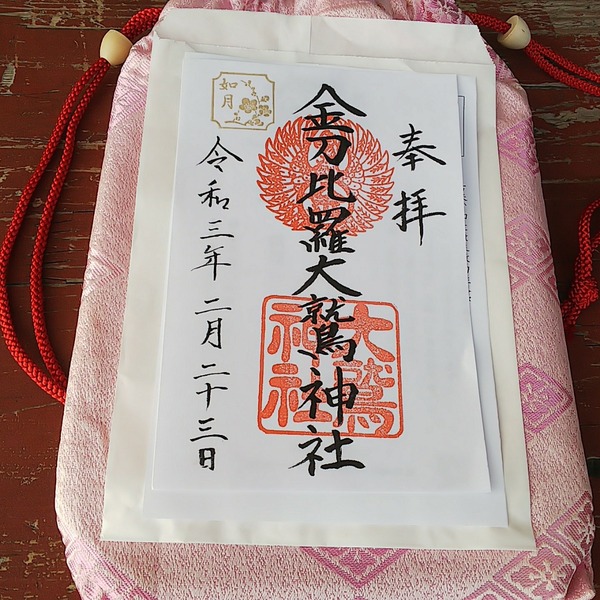 奉拝
金刀比羅大鷲神社
大鷲
神社
如月
令和三年二月二十三日